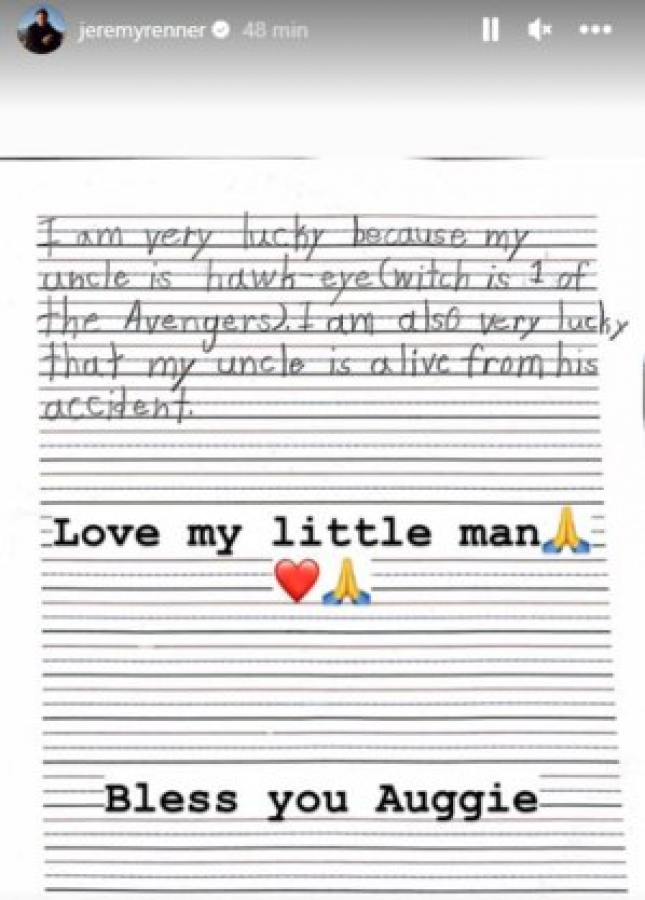 jeremyrenner 48 min
I am very lucky because my
uncle is hawk-eye(witch is 1 of
the Avengers). I am also very lucky
that my uncle is alive from his
accident.
Love my little man🙏
❤️🙏
Bless you Auggie